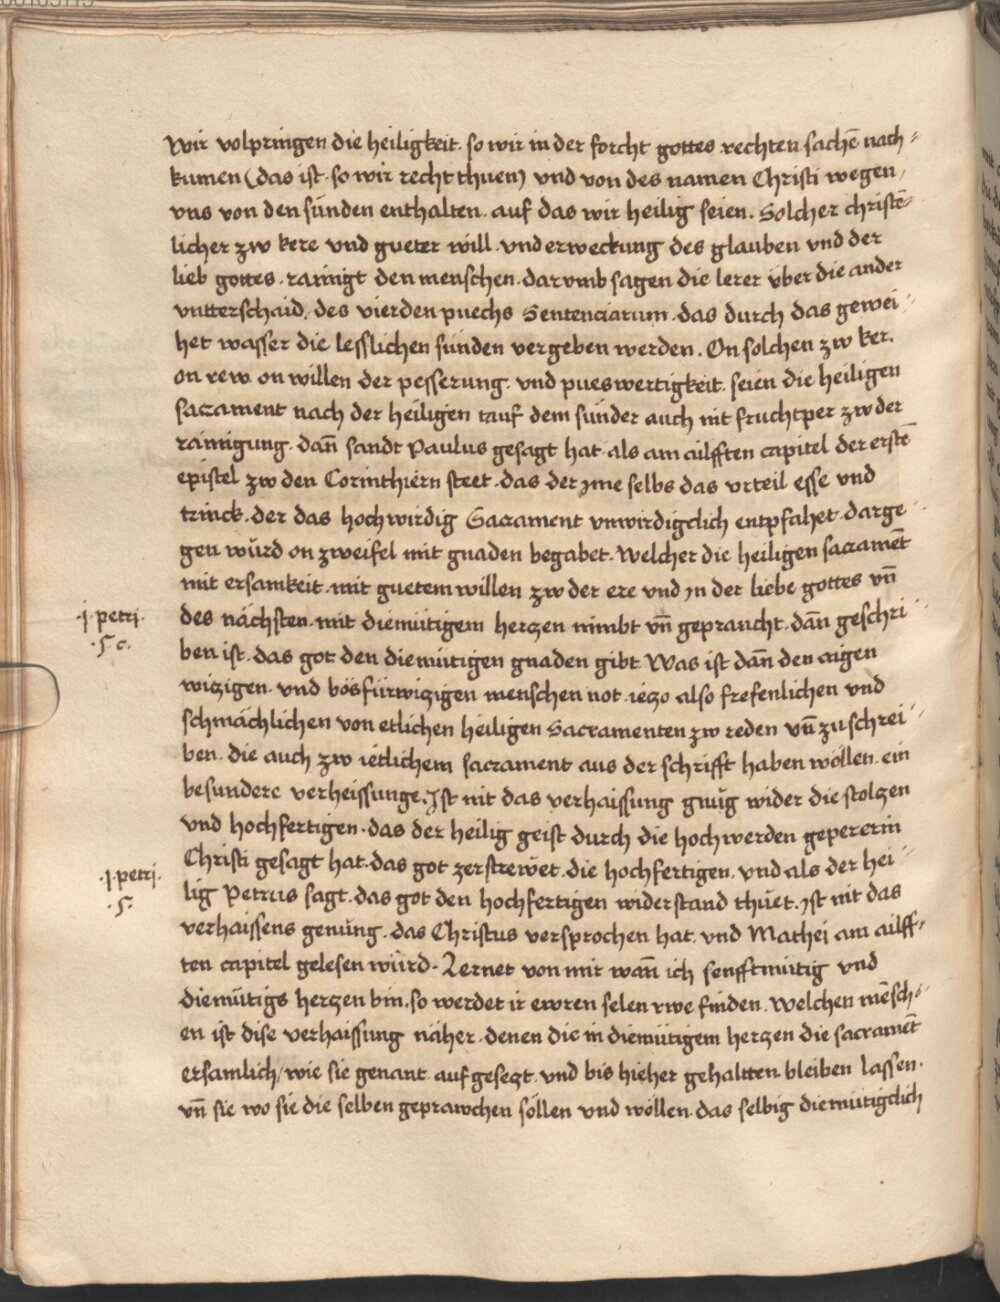 Wir volpringen die heiligkeit. so wir in der forcht gottes rechten sachē nach⸗
kumen (das ist. so wir recht thuen) vnd von des namen Christi wegen,
vns von den sünden enthalten. auf das wir heilig seien. Solcher christē⸗
licher zw kere vnd gueter will. vnd erweckung des glauben vnd der
lieb gottes. rainigt den menschen. darvmb sagen die lerer vber die ander
vntterschaid, des vierden puechs Sentenciarum. das durch das gewei⸗
het wasser die lesslichen sünden vergeben werden. On solchen zw ker.
on rew on willen der pesserung. vnd pueswertigkeit. seien die heiligen
sacrament nach der heiligen tauf dem sünder auch nit fruchtper zw der
rainigung. dañ sandt Paulus gesagt hat. als am ailfften capitel der erstē
epistel zw den Corinthiern steet. das der jme selbs das vrteil esse vnd
trinck. der das hochwirdig Sacrament vnwirdigclich entpfahet. darge⸗
gen würd on zweifel mit gnaden begabet. Welcher die heiligen sacramēt
mit ersamkeit. mit guetem willen zw der ere vnd jn der liebe gottes vñ
.j. petri.
.5 c.
des nächsten. mit diemütigem hertzen nimbt vñ gepraucht. dañ geschri⸗
ben ist. das got den diemütigen gnaden gibt. Was ist dañ den aigen
witzigen. vnd bösfürwitzigen menschen not. ietzo also frefenlichen vnd
schmächlichen von etlichen heiligen Sacramenten zw reden vñ zu schrei⸗
ben. die auch zw ietlichem sacrament aus der schrifft haben wöllen. ein
besundere verheissunge. Jst nit das verhaissung gnüg wider die stoltzen
vnd hochfertigen. das der heilig geist durch die hochwerden gepererin
.j. petri.
.5.
Christi gesagt hat. das got zerstrewet. die hochfertigen. vnd als der hei⸗
lig Petrus sagt. das got den hochfertigen widerstand thüet. jst nit das
verhaissens genüng. das Christus versprochen hat. vnd Mathei am ailff⸗
ten capitel gelesen würd. Lernet von mir wañ ich senfftmütig vnd
diemütigs hertzen bin. so werdet ir ewren selen rwe finden. Welchen mēsch⸗
en ist dise verhaissung näher. denen die in diemütigem hertzen die sacramēt
ersamlich, wie sie genant. aufgesetzt. vnd bis hieher gehaltten. bleiben lassen.
vñ sie wo sie die selben geprawchen söllen vnd wöllen. das selbig diemütigclich